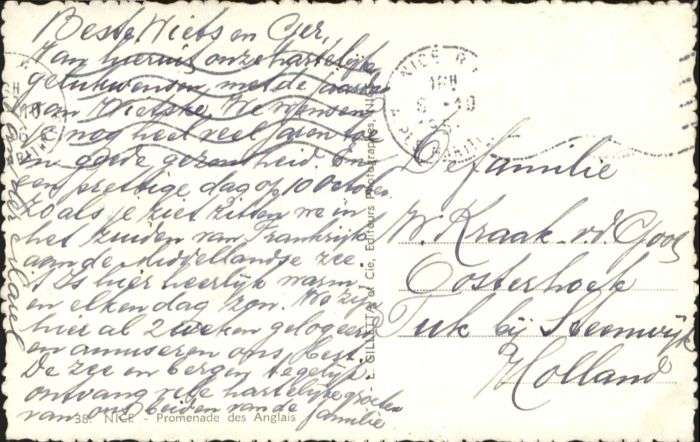 Beste Wiets en Ger,
Van hieruit onze hartelijke
gelukwensen met de jaardag
van Wietske. We wensen
je nog heel veel jaren toe
in goede gezondheid. En
een prettige dag op 10 October
zoals je ziet zitten we in
het zuiden van Frankrijk
aan de Middellandse zee
't Is hier heerlijk warm
en elken dag zon. We zijn
hier al 2 weken gelogeerd
en amuseren ons best.
De zee en bergen tegelijk.
ontvang vele hartelijke groeten
van ons beiden van de familie
38. NICE - Promenade des Anglais
L. GILLETTA et Cie, Editeurs Photographes, NICE
NICE R.P.
De familie
W. Kraak. v.d. Gooi
Oosterhoek
Tuk bij Steenwijk
Holland